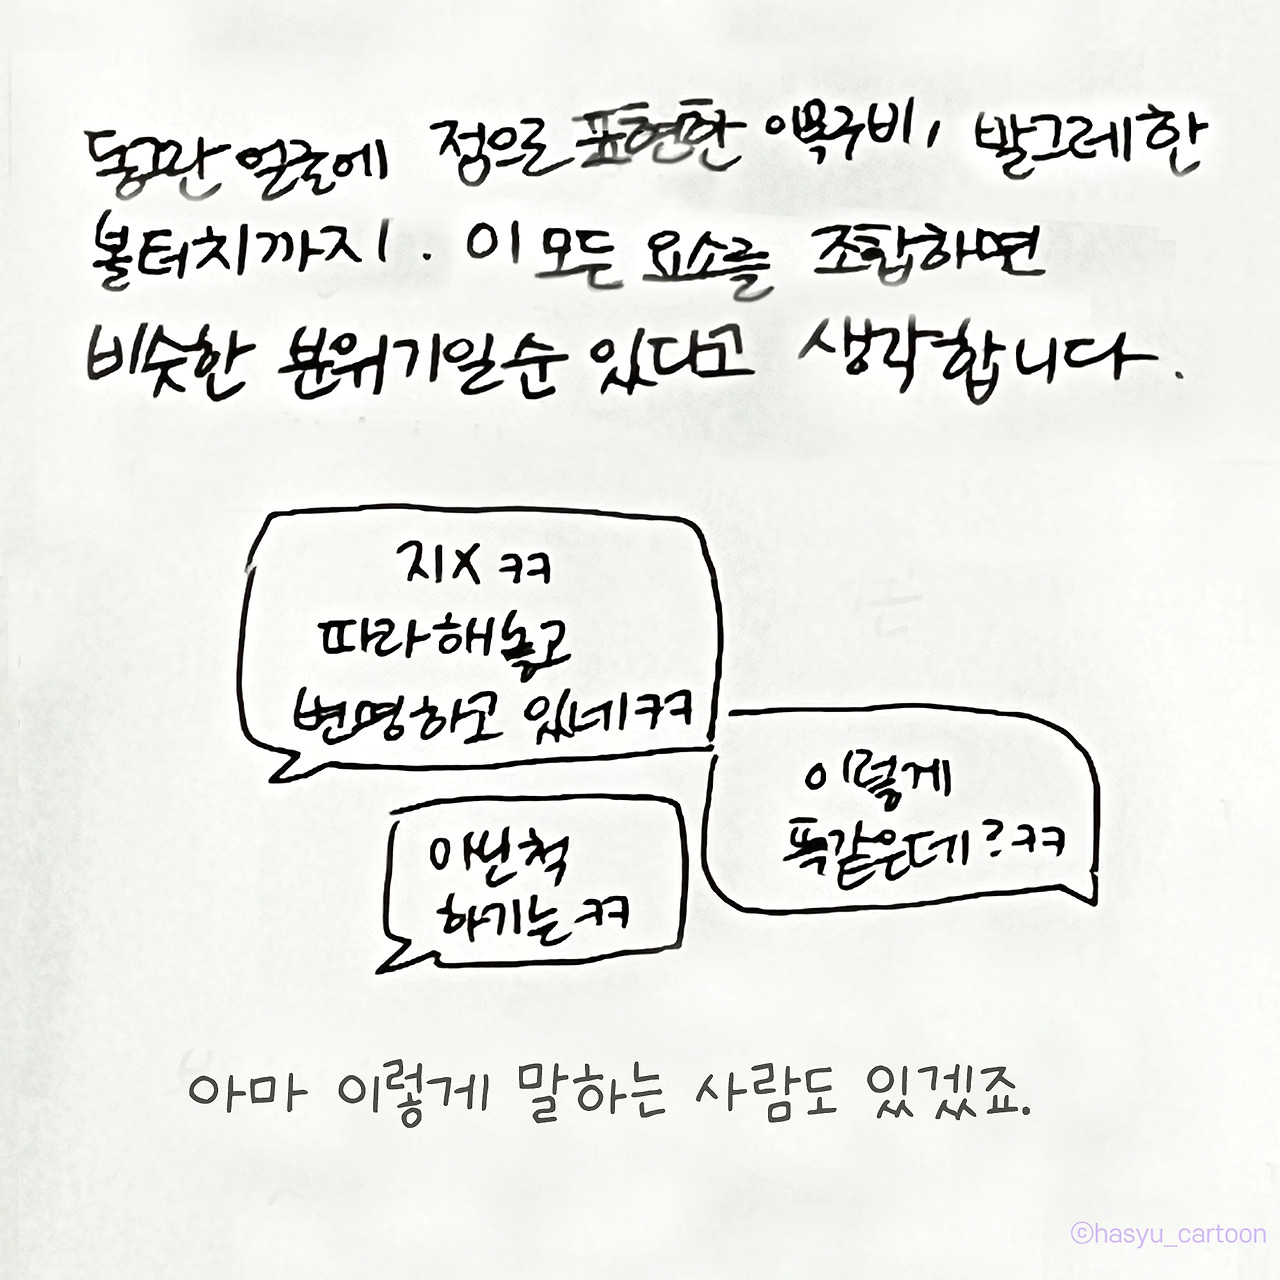 동그란 얼굴에 점으로 표현한 이목구비, 발그레한
볼터치까지. 이 모든 요소를 조합하면
비슷한 분위기일순 있다고 생각합니다.
지X ㅋㅋ
따라해놓고
변명하고 있네ㅋㅋ
이렇게
똑같은데?ㅋㅋ
아닌척
하기는ㅋㅋ
아마 이렇게 말하는 사람도 있겠죠.
©hasyu_cartoon